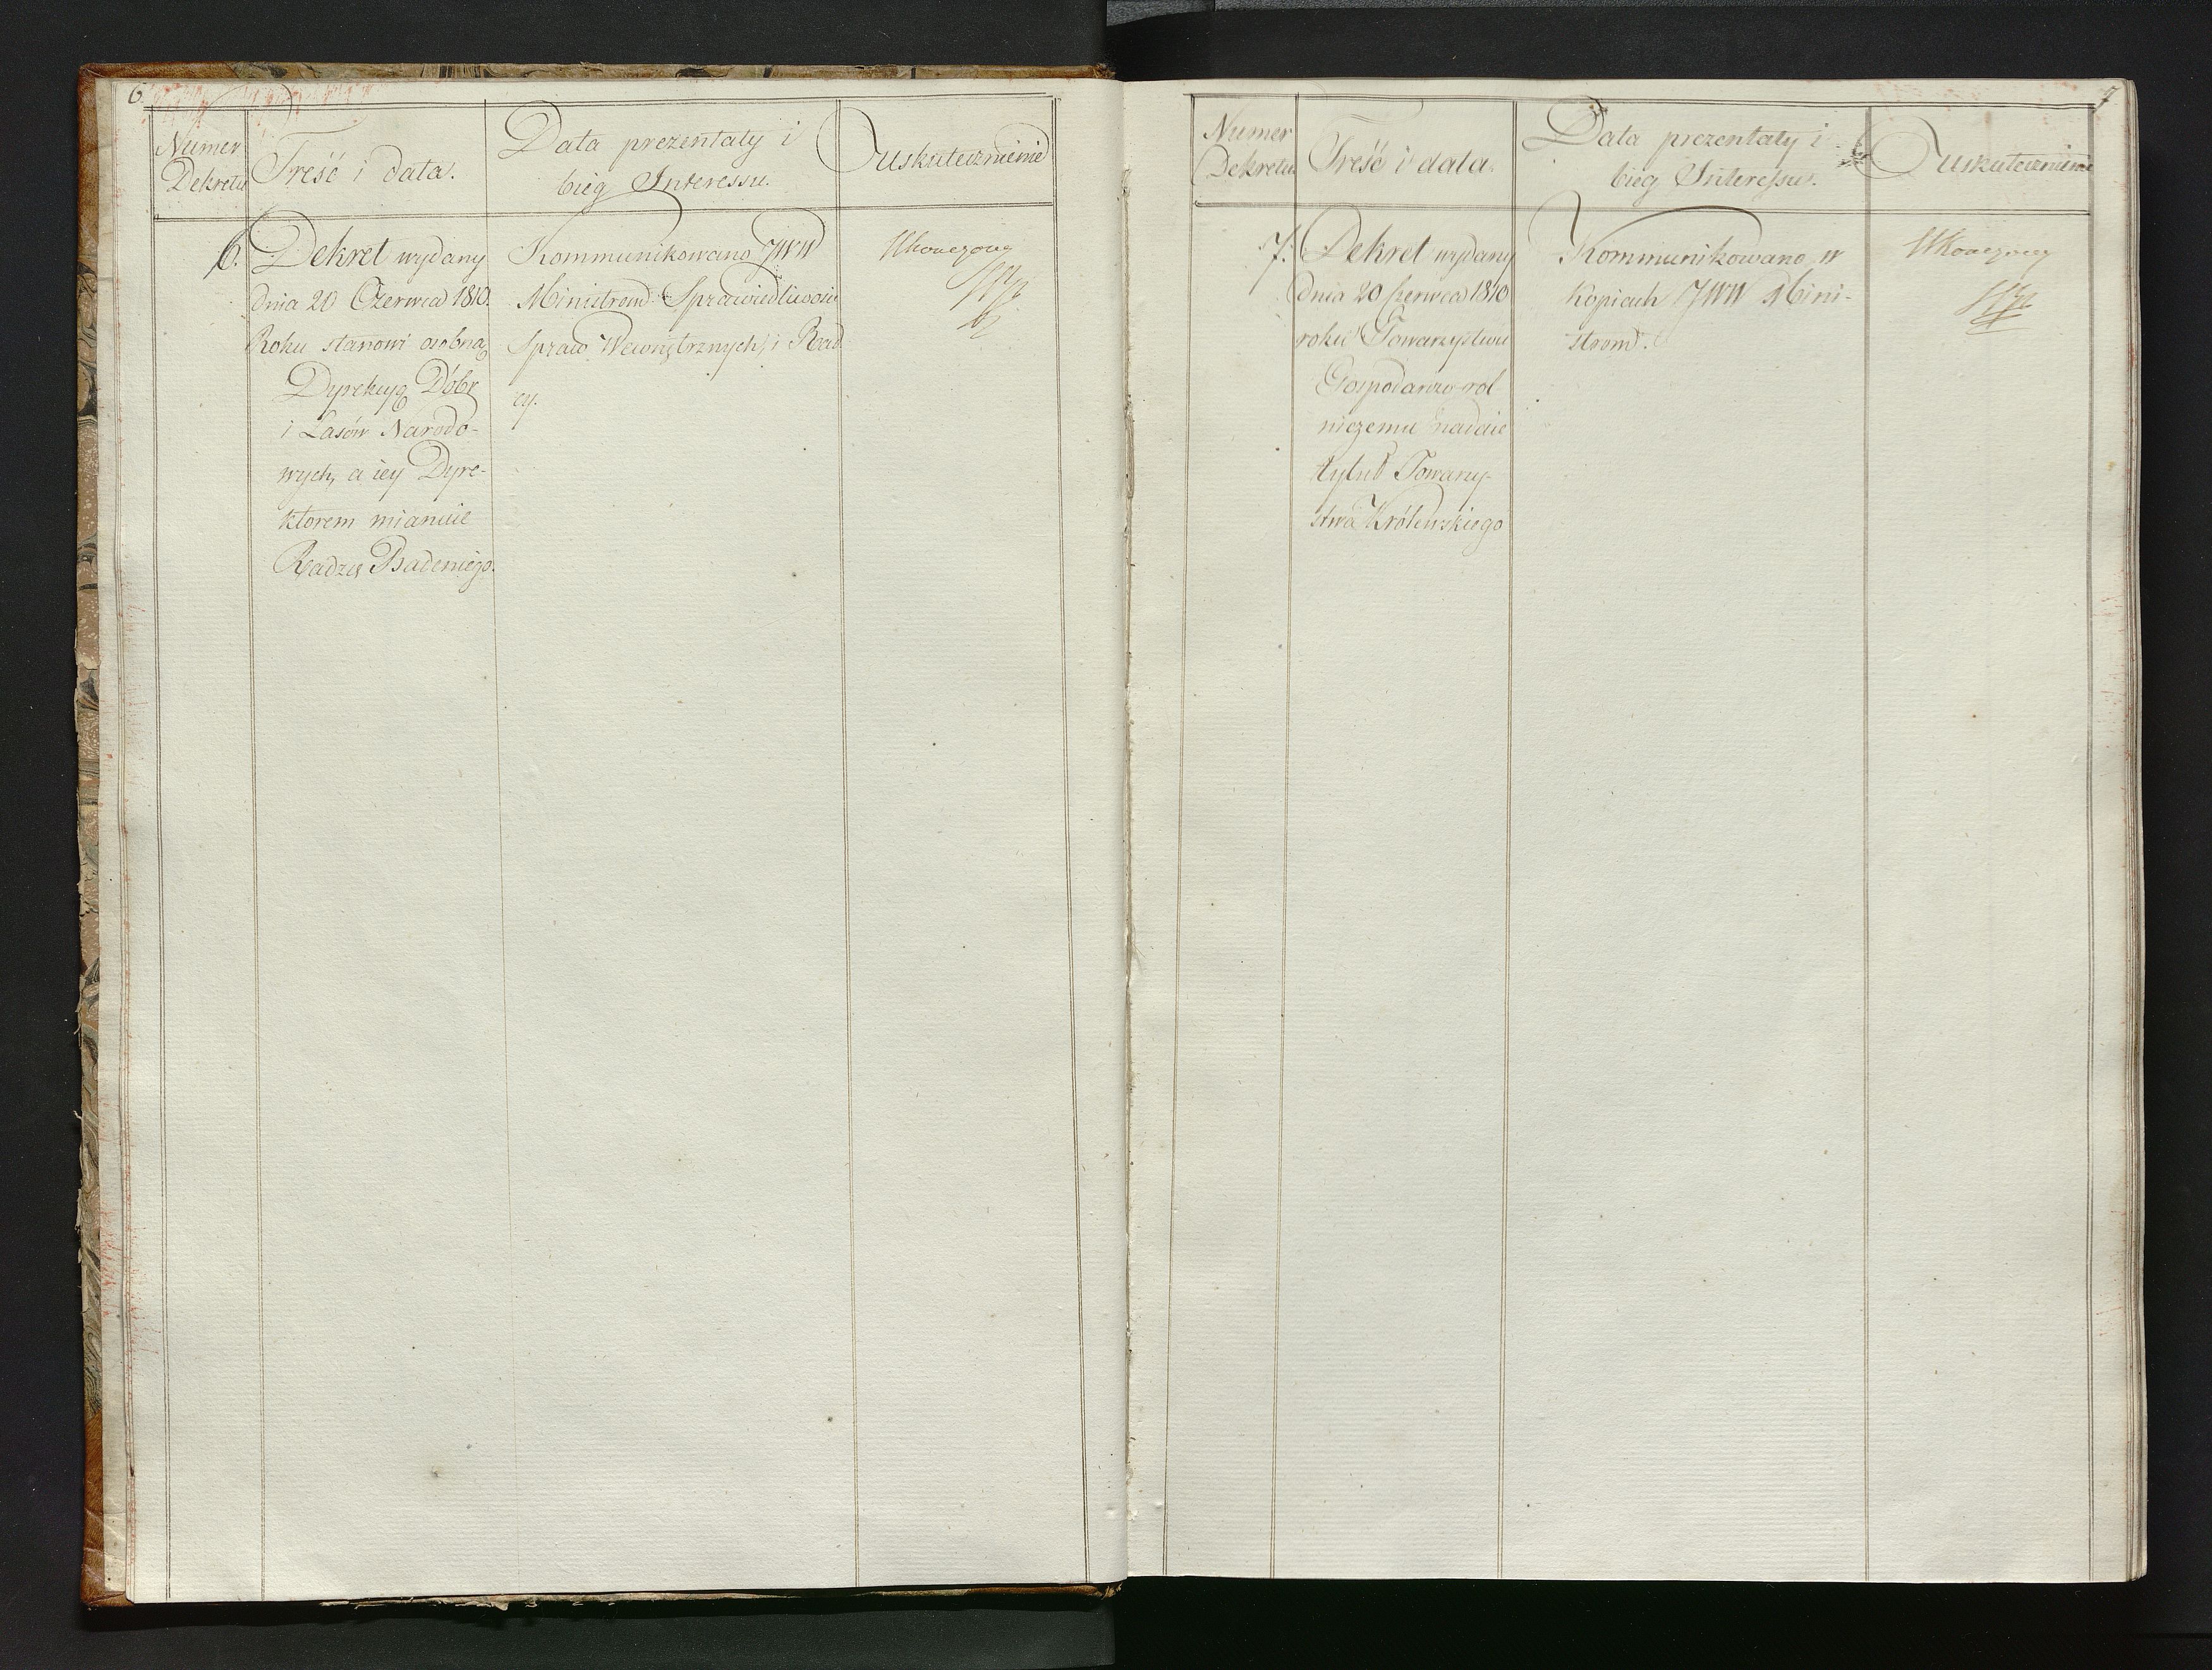 6.
Numer
Dekretu
Treść i data.
Data prezentaty i
bieg Interessu.
uskutecznienie
6.
Dekret wydany
dnia 20 Czerwca 1810.
Roku stanowi osobną
Dyrekcyą Dóbr
i Lasów Narodo-
wych, a iey Dyre-
ktorem mianuie
Radzcę Badeniego.
Kommunikowano JWW
Ministrom Sprawiedliwości
Spraw Wewnętrznych, i Rad
cy.
Ukończony
7
Numer
Dekretu
Treść i data.
Data prezentaty i
bieg Interessu.
uskutecznienie
7.
Dekret wydany
dnia 20 Czerwca 1810
roku Towarzystwu
Gospodarczo-rol
niczemu nadaie
tytuł Towarzy-
stwa Królewskiego
Kommunikowano w
Kopiach JWW Mini-
strom.
Ukończony